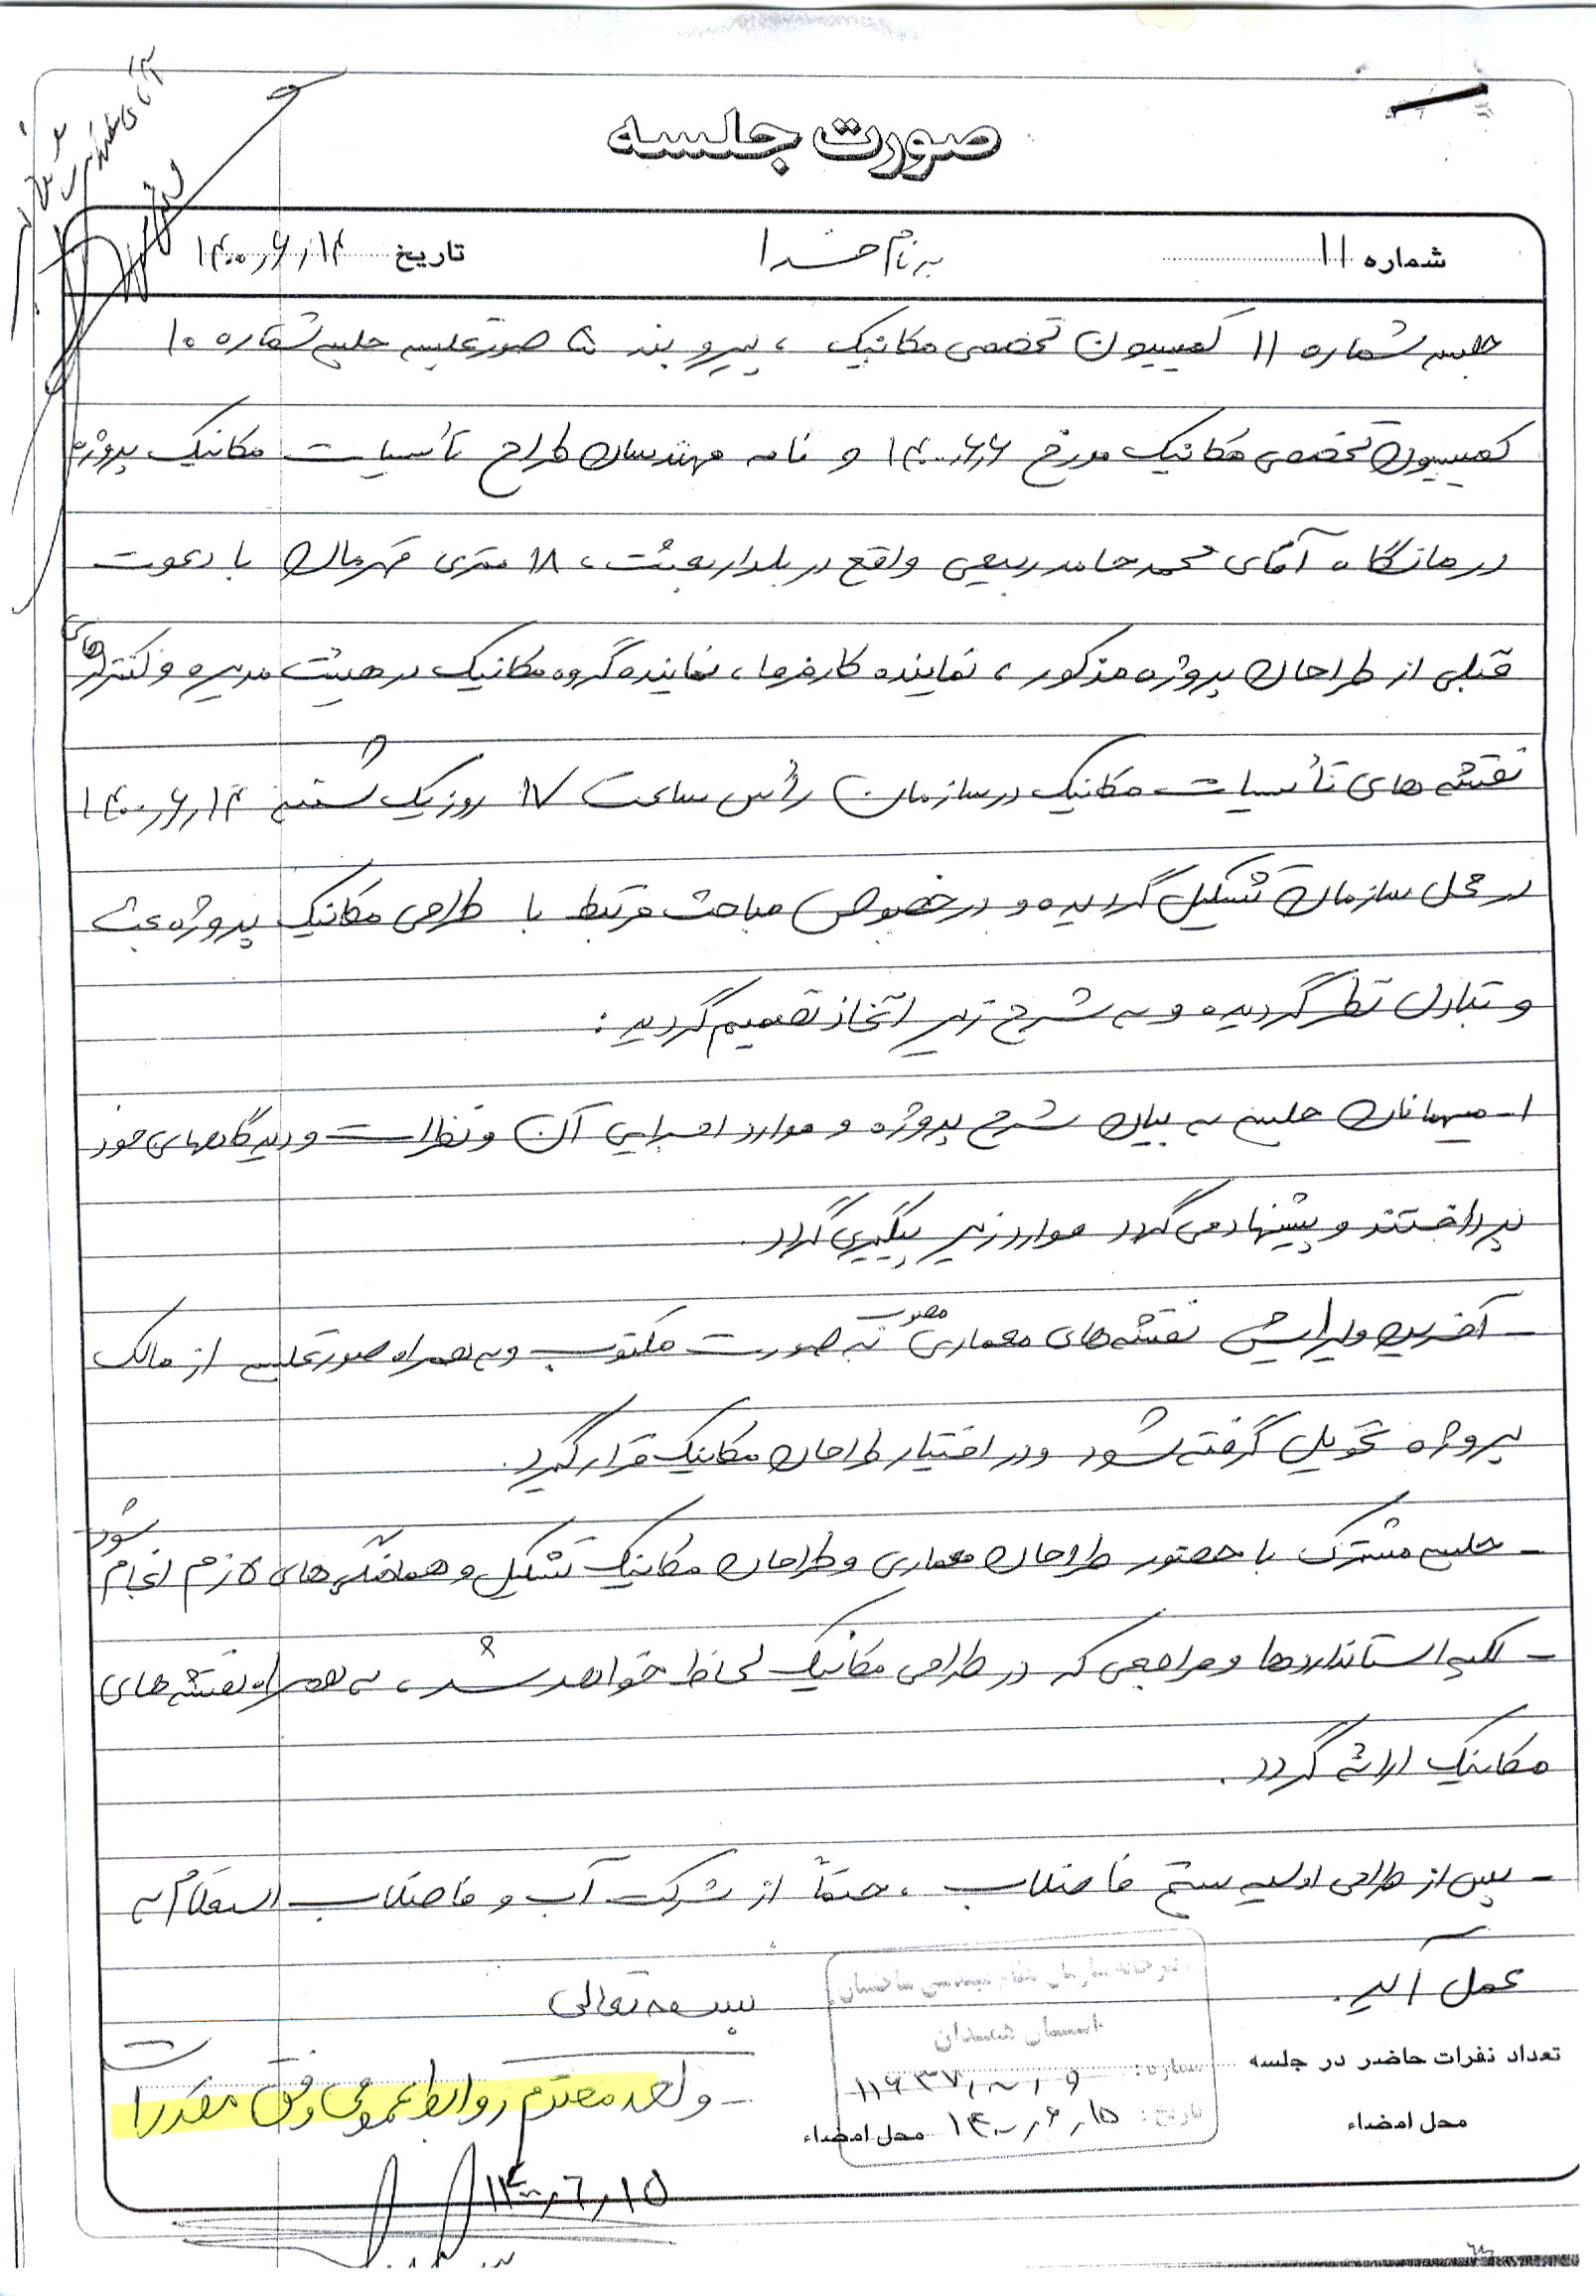 صورت جلسه
شماره ۱۱ به نام خدا تاریخ ۱۴۰۰٫۶٫۱۴
جلسه شماره ۱۱ کمیسیون تخصصی مکانیک ، پیرو بند ۵ صورتجلسه جلسه شماره ۱۰
کمیسیون تخصصی مکانیک مورخ ۱۴۰۰٫۶٫۶ و نامه مهندسان طراح تأسیسات مکانیک پروژه
درمانگاه آقای محمد حامد ربیعی واقع در بلوار بعثت ، ۱۸ متری قهرمان با دعوت
قبلی از طراحان پروژه مذکور ، نماینده کارفرما ، نماینده گروه مکانیک در هیئت مدیره و کنترل های
نقشه های تأسیسات مکانیک در سازمان رأس ساعت ۱۷ روز یک شنبه ۱۴۰۰٫۶٫۱۴
در محل سازمان تشکیل گردیده و در خصوص مباحث مرتبط با طراحی مکانیک پروژه بحث
و تبادل نظر گردیده و به شرح زیر اتخاذ تصمیم گردید :
۱- میهمانان جلسه به بیان شرح پروژه و موارد اجرایی آن و نظرات و دیدگاههای خود
پرداختند و پیشنهاد می گردد موارد زیر پیگیری گردد .
- آخرین ویرایش نقشه های معماری مصوب به صورت مکتوب و به همراه صورتجلسه از مالک
پروژه تحویل گرفته شود و در اختیار طراحان مکانیک قرار گیرد .
- جلسه مشترک با حضور طراحان معماری و طراحان مکانیک تشکیل و هماهنگی های لازم انجام شود
- کلیه استانداردها و مراجعی که در طراحی مکانیک لحاظ خواهد شد ، به همراه نقشه های
مکانیک ارائه گردد .
- پس از طراحی اولیه سیستم فاضلاب ، حتماً از شرکت آب و فاضلاب استعلام به
عمل آید .
بسمه تعالی
تعداد نفرات حاضر در جلسه
شماره :
- واحد محترم روابط عمومی وفق مقررات
تاریخ : ۱۴۰۰٫۶٫۱۵
محل امضاء محل امضاء
۱۴۰۰٫۶٫۱۵